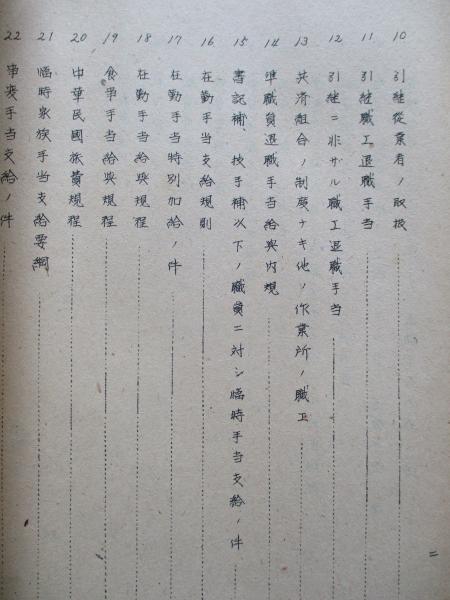 10 引継従業者ノ取扱
11 引継職工退職手当
12 引継ニ非ザル職工退職手当
13 共済組合ノ制度ナキ他ノ作業所ノ職工
14 準職員退職手当給与内規
15 書記補、技手補以下ノ職員ニ対シ臨時手当支給ノ件
16 在勤手当支給規則
17 在勤手当特別加給ノ件
18 在勤手当給与規程
19 食事手当給与規程
20 中華民國旅費規程
21 臨時家族手当支給要綱
22 事変手当支給ノ件
二